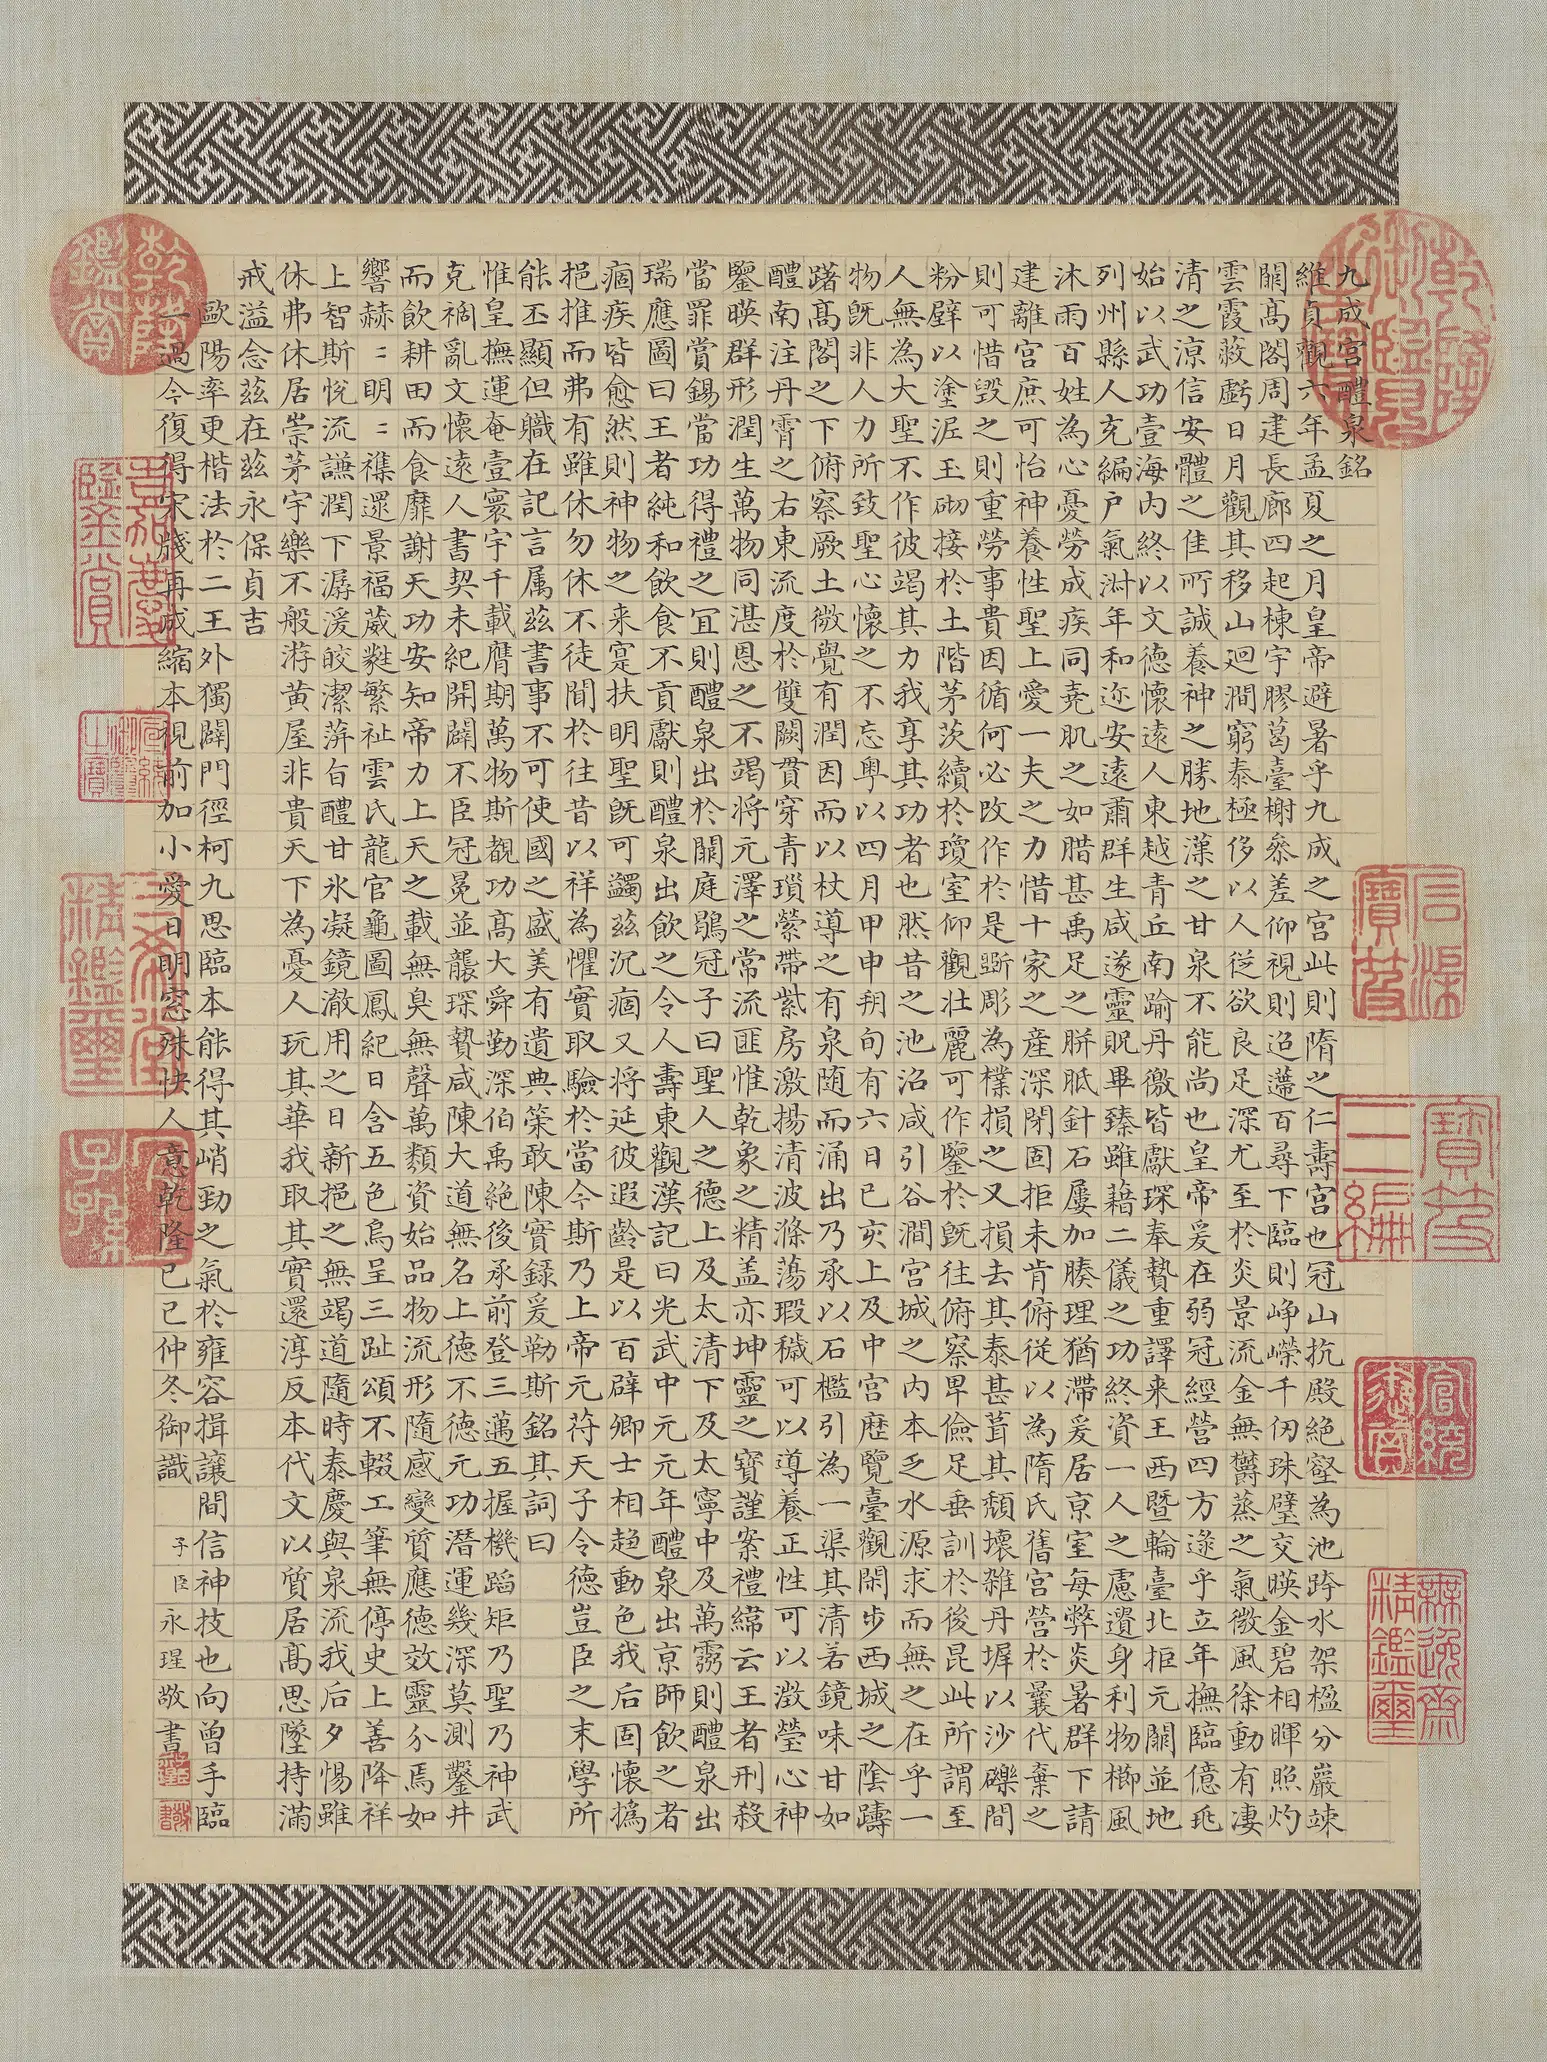 九成宮醴泉銘
維貞觀六年孟夏之月皇帝避暑乎九成之宮此則隋之仁壽宮也冠山抗殿絕壑為池跨水架楹分巖竦
闕高閣周建長廊四起棟宇膠葛臺榭參差仰視則迢遰百尋下臨則崢嶸千仞珠璧交暎金碧相暉照灼
雲霞蔽虧日月觀其移山廻澗窮泰極侈以人從欲良足深尤至於炎景流金無欝蒸之氣微風徐動有淒
清之涼信安體之佳所誠養神之勝地漢之甘泉不能尚也皇帝爰在弱冠經營四方逮乎立年撫臨億兆
始以武功壹海內終以文德懷遠人東越青丘南踰丹徼皆獻琛奉贄重譯来王西暨輪臺北拒元闕並地
列州縣人充編戶氣淑年和迩安遠肅群生咸遂靈貺畢臻雖藉二儀之功終資一人之慮遺身利物櫛風
沐雨百姓為心憂勞成疾同堯肌之如腊甚禹足之胼胝針石屢加腠理猶滯爰居京室每弊炎暑群下請
建離宮庶可怡神養性聖上愛一夫之力惜十家之產深閉固拒未肯俯從以為隋氏舊宮營於曩代棄之
則可惜毀之則重勞事貴因循何必改作於是斲彫為樸損之又損去其泰甚葺其頹壞雜丹墀以沙礫間
粉壁以塗泥玉砌接於土階茅茨續於瓊室仰觀壯麗可作鑒於既往俯察卑儉足垂訓於後昆此所謂至
人無為大聖不作彼竭其力我享其功者也然昔之池沼咸引谷澗宮城之內本乏水源求而無之在乎一
物既非人力所致聖心懷之不忘粵以四月甲申朔旬有六日己亥上及中宮歷覽臺觀閑步西城之陰躊
躇高閣之下俯察厥土微覺有潤因而以杖導之有泉随而涌出乃承以石檻引為一渠其清若鏡味甘如
醴南注丹霄之右東流度於雙闕貫穿青瑣縈帶紫房激揚清波滌蕩瑕穢可以導養正性可以澂瑩心神
鑒暎群形潤生萬物同湛恩之不竭将元澤之常流匪惟乾象之精盖亦坤靈之寶謹案禮緯云王者刑殺
當罪賞錫當功得禮之宜則醴泉出於闕庭鶡冠子曰聖人之德上及太清下及太寧中及萬靈則醴泉出
瑞應圖曰王者純和飲食不貢獻則醴泉出飲之令人壽東觀漢記曰光武中元元年醴泉出京師飲之者
痼疾皆愈然則神物之来寔扶明聖既可蠲茲沉痼又将延彼遐齡是以百辟卿士相趨動色我后固懷撝
挹推而弗有雖休勿休不徒聞於往昔以祥為懼實取驗於當今斯乃上帝元符天子令德豈臣之末學所
能丕顯但職在記言属茲書事不可使國之盛美有遺典策敢陳實録爰勒斯銘其詞曰
惟皇撫運奄壹寰宇千載膺期萬物斯覩功高大舜勤深伯禹絕後承前登三邁五握機蹈矩乃聖乃神武
克禍亂文懷遠人書契未紀開闢不臣冠冕並襲琛贄咸陳大道無名上德不德元功潜運幾深莫測鑿井
而飲耕田而食靡謝天功安知帝力上天之載無臭無聲萬類資始品物流形隨感變質應德效靈介焉如
響赫〻明〻襍還景福葳蕤繁祉雲氏龍官龜圖鳳紀日含五色烏呈三趾頌不輟工筆無停史上善降祥
上智斯悅流謙潤下潺湲皎潔蓱旨醴甘氷凝鏡澈用之日新挹之無竭道隨時泰慶與泉流我后夕惕雖
休弗休居崇茅宇樂不般游黃屋非貴天下為憂人玩其華我取其實還淳反本代文以質居高思墜持滿
戒溢念茲在茲永保貞吉
歐陽率更楷法於二王外獨闢門徑柯九思臨本能得其峭勁之氣於雍容揖讓間信神技也向曾手臨
一過今復得宋牋再成縮本視前加小愛日明窓殊快人意乾隆己巳仲冬御識
子臣永瑆敬書
乾隆御覽之寶
石渠寶笈
寶笈三編
宣統鑑賞
無逸齋精鑑璽
乾隆鑑賞
嘉慶鑑賞
宣統御覽之寶
三希堂精鑑璽
宜子孫